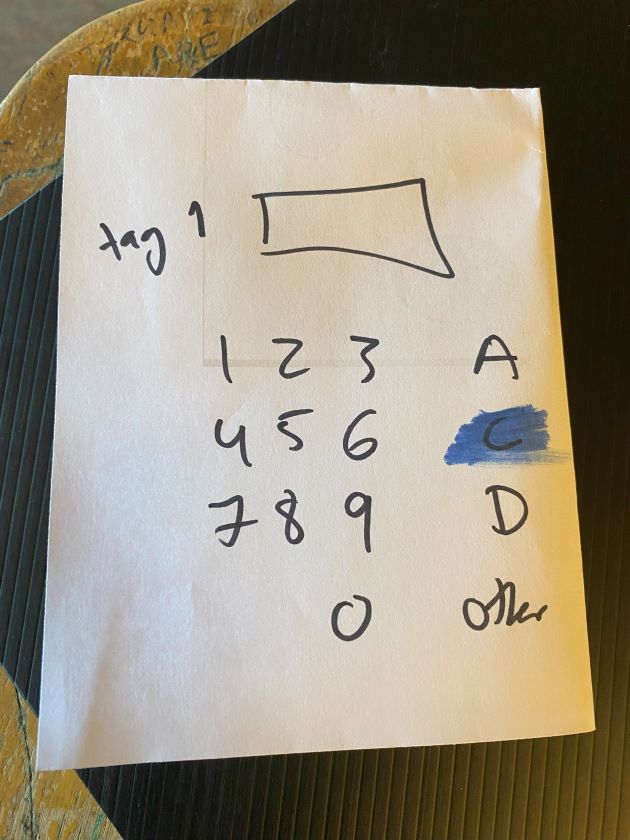 tag 1
1 2 3 A
4 5 6 C
7 8 9 D
0 other